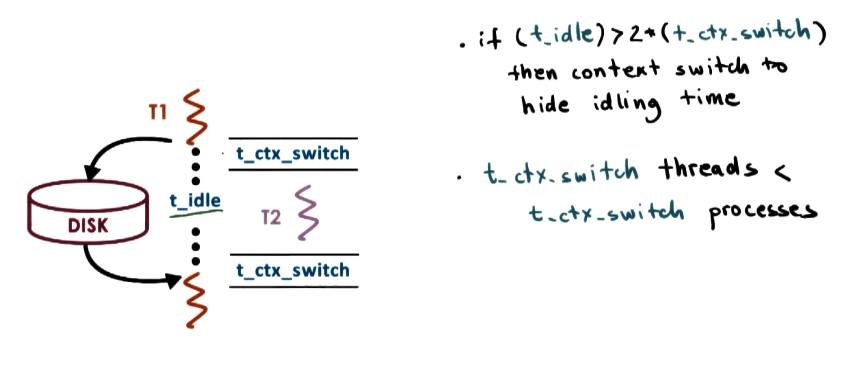 T1
t_ctx_switch
t_idle
T2
DISK
t_ctx_switch
. if (t_idle) > 2*(t_ctx_switch)
then context switch to
hide idling time
. t_ctx_switch threads <
t_ctx_switch processes